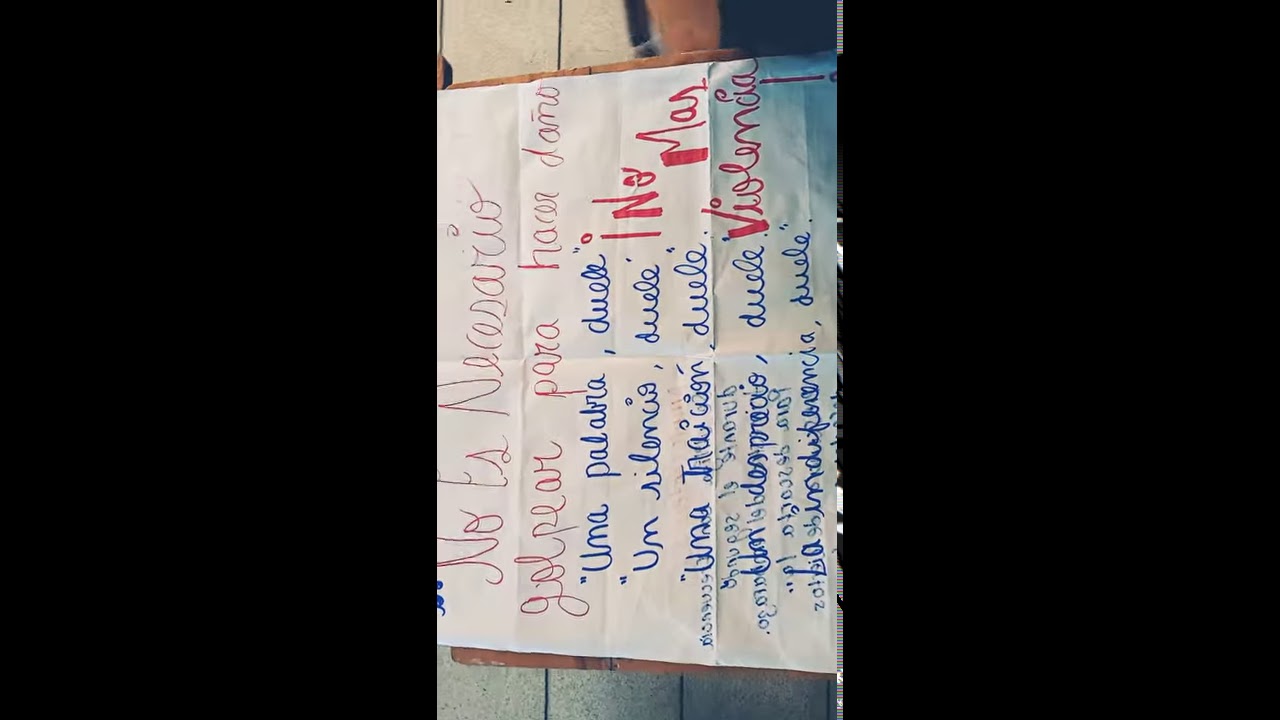 No Es Necesario
golpear para hacer daño
"Una palabra, duele"
"Un silencio, duele"
"Una Traición, duele".
Un desprecio, duele".
"La indiferencia, duele".
¡No
Mas
Violencia
!